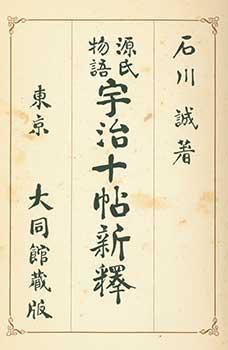 石川 誠著
源氏
物語
宇治十帖新釋
東京 大同館蔵版